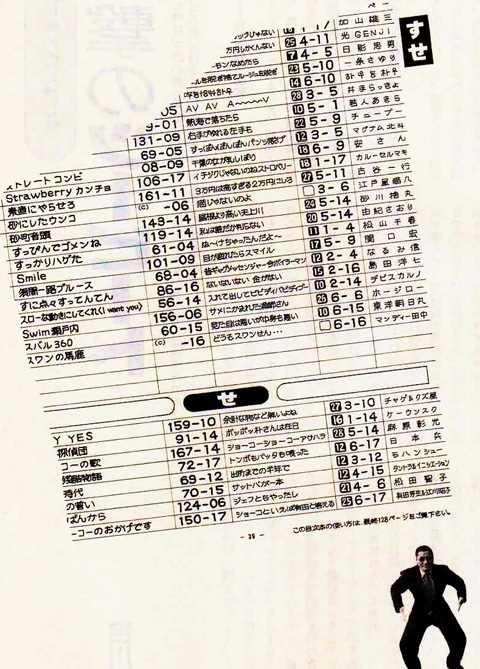 すせ
加山雄三
4-11 光GENJI
万円しかくんない 4-5 日影忠男
5-10 一条さゆり
6-10
3-5 井まらっきょ
-05 AV AV A〜〜〜V 5-1 若人あきら
9-01 熱海で落ちたら 5-9 チューブー
131-09 右手がゆれる左ぎも 3-5 マグナム北斗
69-05 6-9 安さん
08-09 千葉の女が乱しぼり 1-17 カールセルマキ
ストレートコンビ 106-17 イチジクじゃないのねストロベリー 5-11 古谷一行
Strawberry カンチョ 161-11 3万円は高すぎる2万円にしろ 3-6 江戸屋猫八
素直にやらせろ (C) -06 猫じゃないのよ 5-14 砂川捨丸
砂にしたウンコ 143-14 屋根より高い天上川 5-14 由紀さおり
砂町音頭 119-14 私は誰だか判らない 1-4 松山千春
すっぴんでゴメンね 61-04 ぬ〜けちゃったんだよ〜 5-9 関口宏
すっかりハゲた 101-09 目が腫れたらスマイル 2-4 なるみ信
Smile 68-04 昔ギャグメッセンジャー今ボイラーマン 2-16 島田洋七
須磨一路ブルース 86-16 ないないない 金がない 2-14 デビスカルノ
すに点々すってんてん 56-14 入れて出してビビディバビディブー 6-6 ホージロー
スローな動きにしてくれ(I want you) 156-06 サメにかまれた漁師さん 6-15 東洋朝日丸
Swim瀬戸内 60-15 見た目は悪いが中身も悪い 6-16 マンディー田中
スバル360 (C) -16 どうもスワンせん・・・
スワンの馬鹿
せ
Y YES 159-10 余計な物など無いよね 3-10 チャゲ&クズ屋
探偵団 91-14 ポッポッ朴さんは在日 1-14 ケーウンスク
コーの歌 167-14 ショーコーショーコーアサハラ 5-14 麻原彰光
残酷物語 72-17 トンボもバッタも喰った 6-17 日本兵
時代 69-12 出所までの半年で 3-12 ちハンシュー
の誓い 70-15 ザットバガー本 4-15
ばんから 124-06 ジェフとらやったし 4-6 松田智子
ーコーのおかげです 150-17 ショーコといえば有田と答える 6-17 有田芳生&江川紹子
この目次本の使い方は、最終128ページをご覧下さい。
- 39 -